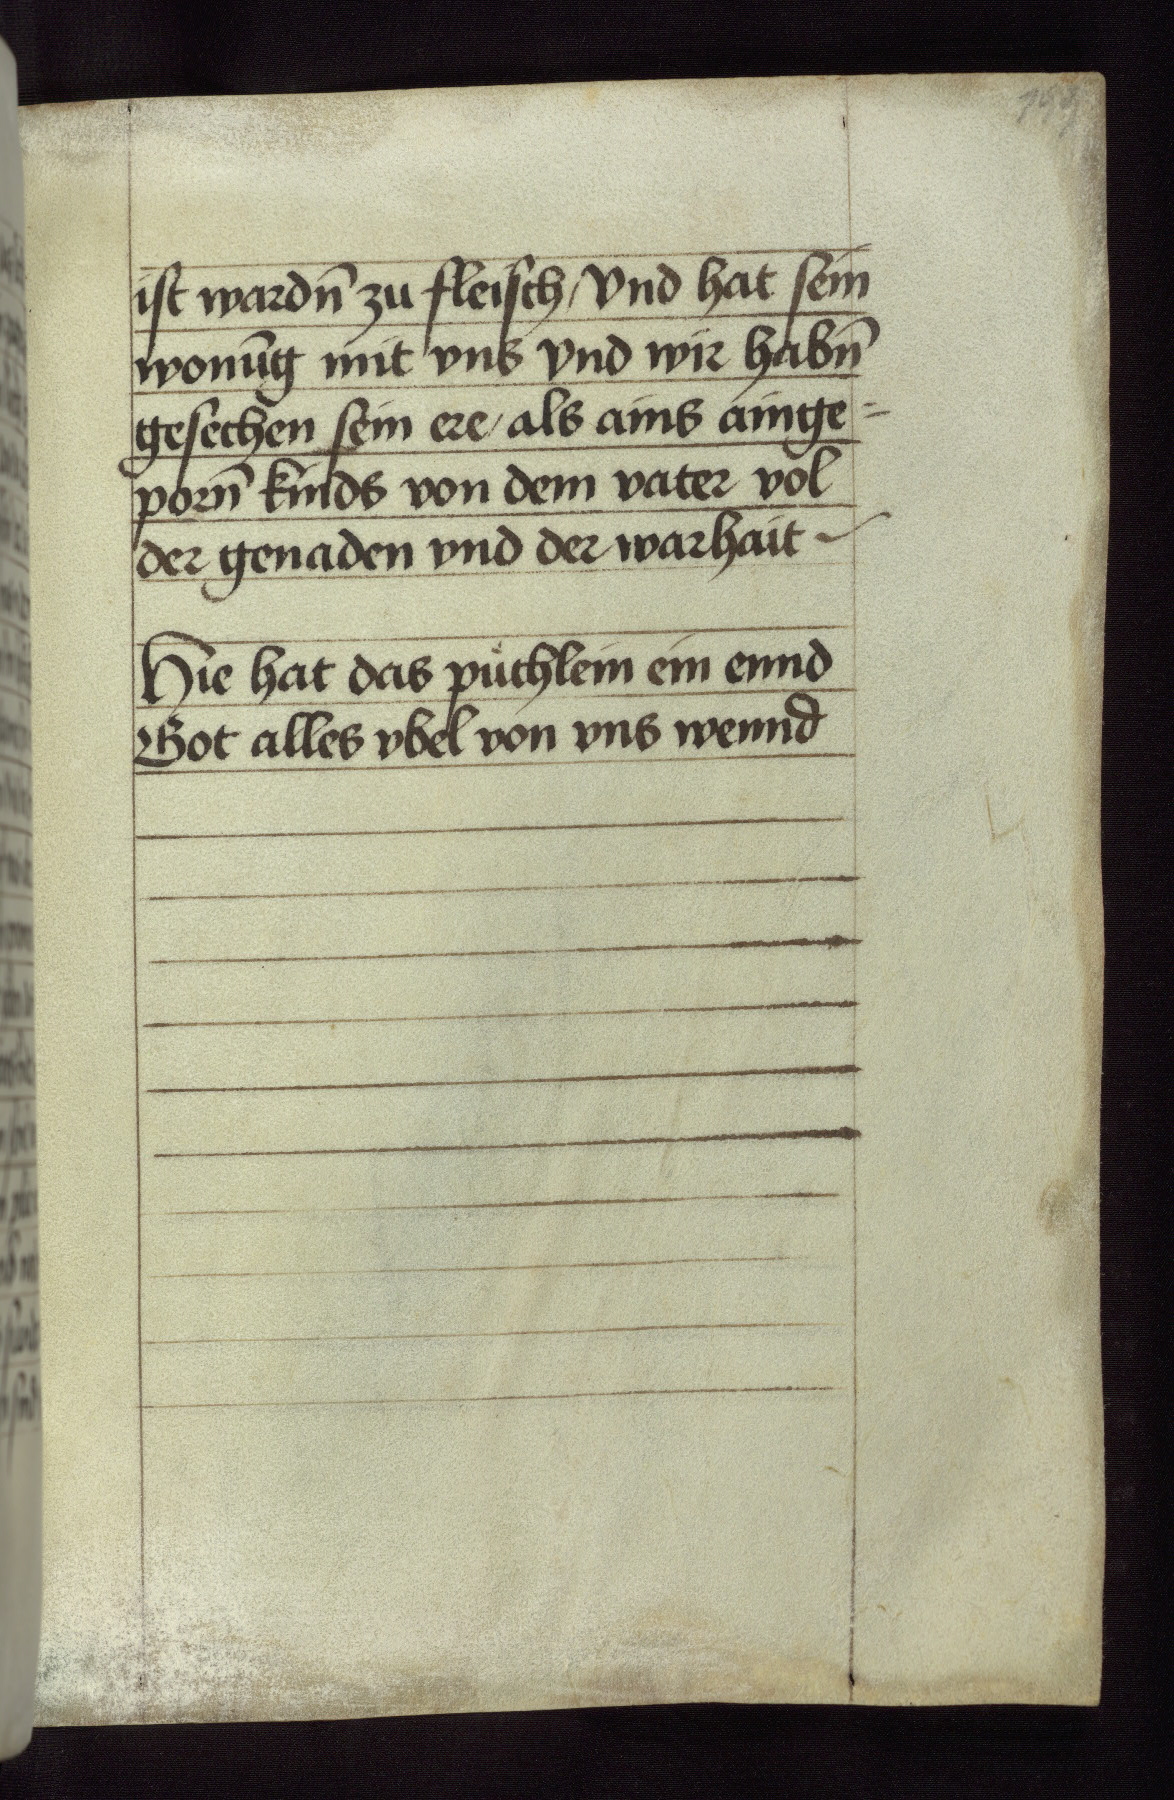 ist wardn̄ zu fleisch / Vnd hat sein
wonūg mit vns Vnd wir habn̄
gesechen sein ere / als ains ainge=
porn̄ kinds von dem vater vol
der genaden vnd der warhait
Hie hat das puͤchlein ein ennd
Got alles vbel von vns wennd